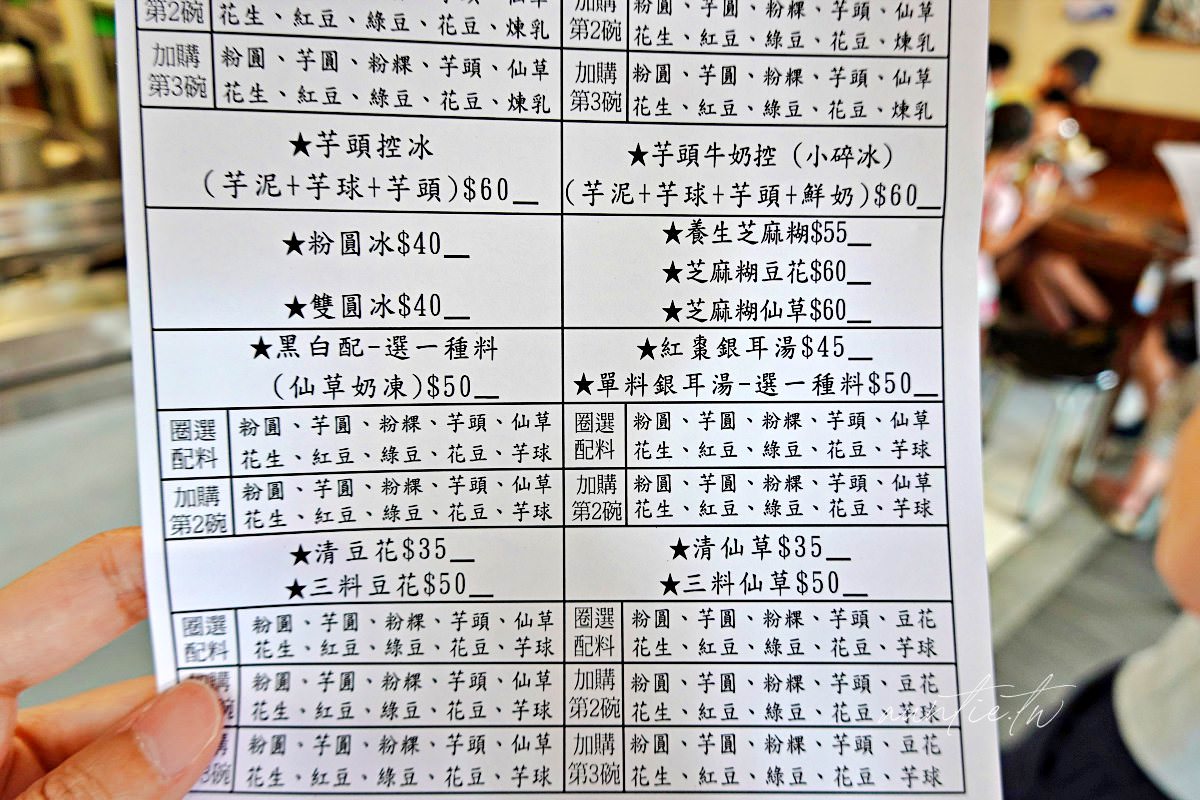 第2碗 花生、紅豆、綠豆、花豆、煉乳
加購 粉圓、芋圓、粉粿、芋頭、仙草
第3碗 花生、紅豆、綠豆、花豆、煉乳
★芋頭控冰
(芋泥+芋球+芋頭)$60__
★粉圓冰$40__
★雙圓冰$40__
★黑白配-選一種料
(仙草奶凍)$50__
圈選 粉圓、芋圓、粉粿、芋頭、仙草
配料 花生、紅豆、綠豆、花豆、芋球
加購 粉圓、芋圓、粉粿、芋頭、仙草
第2碗 花生、紅豆、綠豆、花豆、芋球
★清豆花$35__
★三料豆花$50__
圈選 粉圓、芋圓、粉粿、芋頭、仙草
配料 花生、紅豆、綠豆、花豆、芋球
購 粉圓、芋圓、粉粿、芋頭、仙草
碗 花生、紅豆、綠豆、花豆、芋球
購 粉圓、芋圓、粉粿、芋頭、仙草
3碗 花生、紅豆、綠豆、花豆、芋球
加購 粉圓、芋圓、粉粿、芋頭、仙草
第2碗 花生、紅豆、綠豆、花豆、煉乳
加購 粉圓、芋圓、粉粿、芋頭、仙草
第3碗 花生、紅豆、綠豆、花豆、煉乳
★芋頭牛奶控(小碎冰)
(芋泥+芋球+芋頭+鮮奶)$60__
★養生芝麻糊$55__
★芝麻糊豆花$60__
★芝麻糊仙草$60__
★紅棗銀耳湯$45__
★單料銀耳湯-選一種料$50__
圈選 粉圓、芋圓、粉粿、芋頭、仙草
配料 花生、紅豆、綠豆、花豆、芋球
加購 粉圓、芋圓、粉粿、芋頭、仙草
第2碗 花生、紅豆、綠豆、花豆、芋球
★清仙草$35__
★三料仙草$50__
圈選 粉圓、芋圓、粉粿、芋頭、豆花
配料 花生、紅豆、綠豆、花豆、芋球
加購 粉圓、芋圓、粉粿、芋頭、豆花
第2碗 花生、紅豆、綠豆、花豆、芋球
加購 粉圓、芋圓、粉粿、芋頭、豆花
第3碗 花生、紅豆、綠豆、花豆、芋球